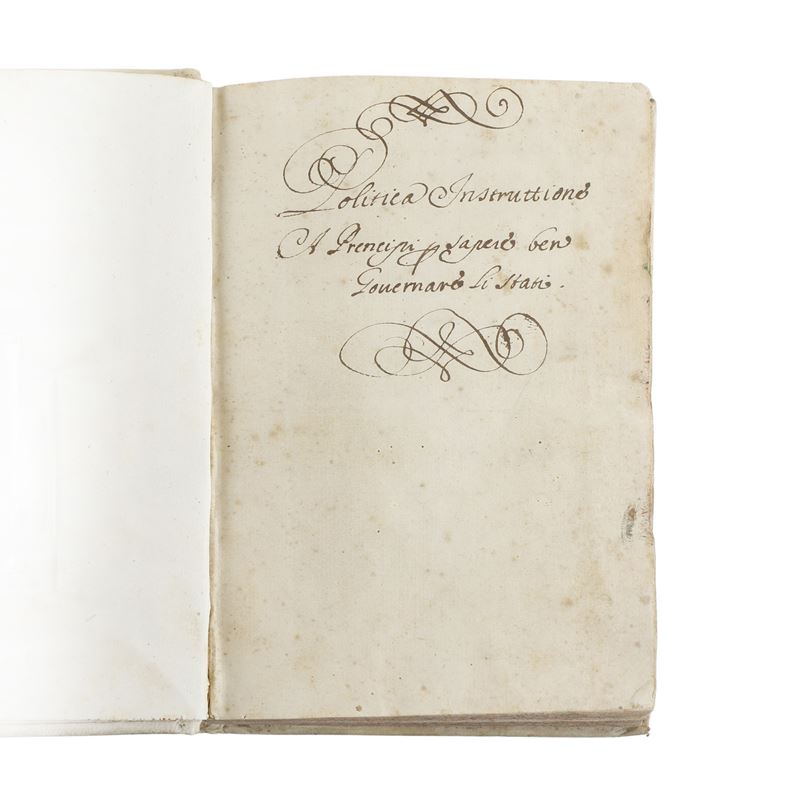 Politica Instruttione
A Prencipi ꝑ sapere ben
Governare li Stati.